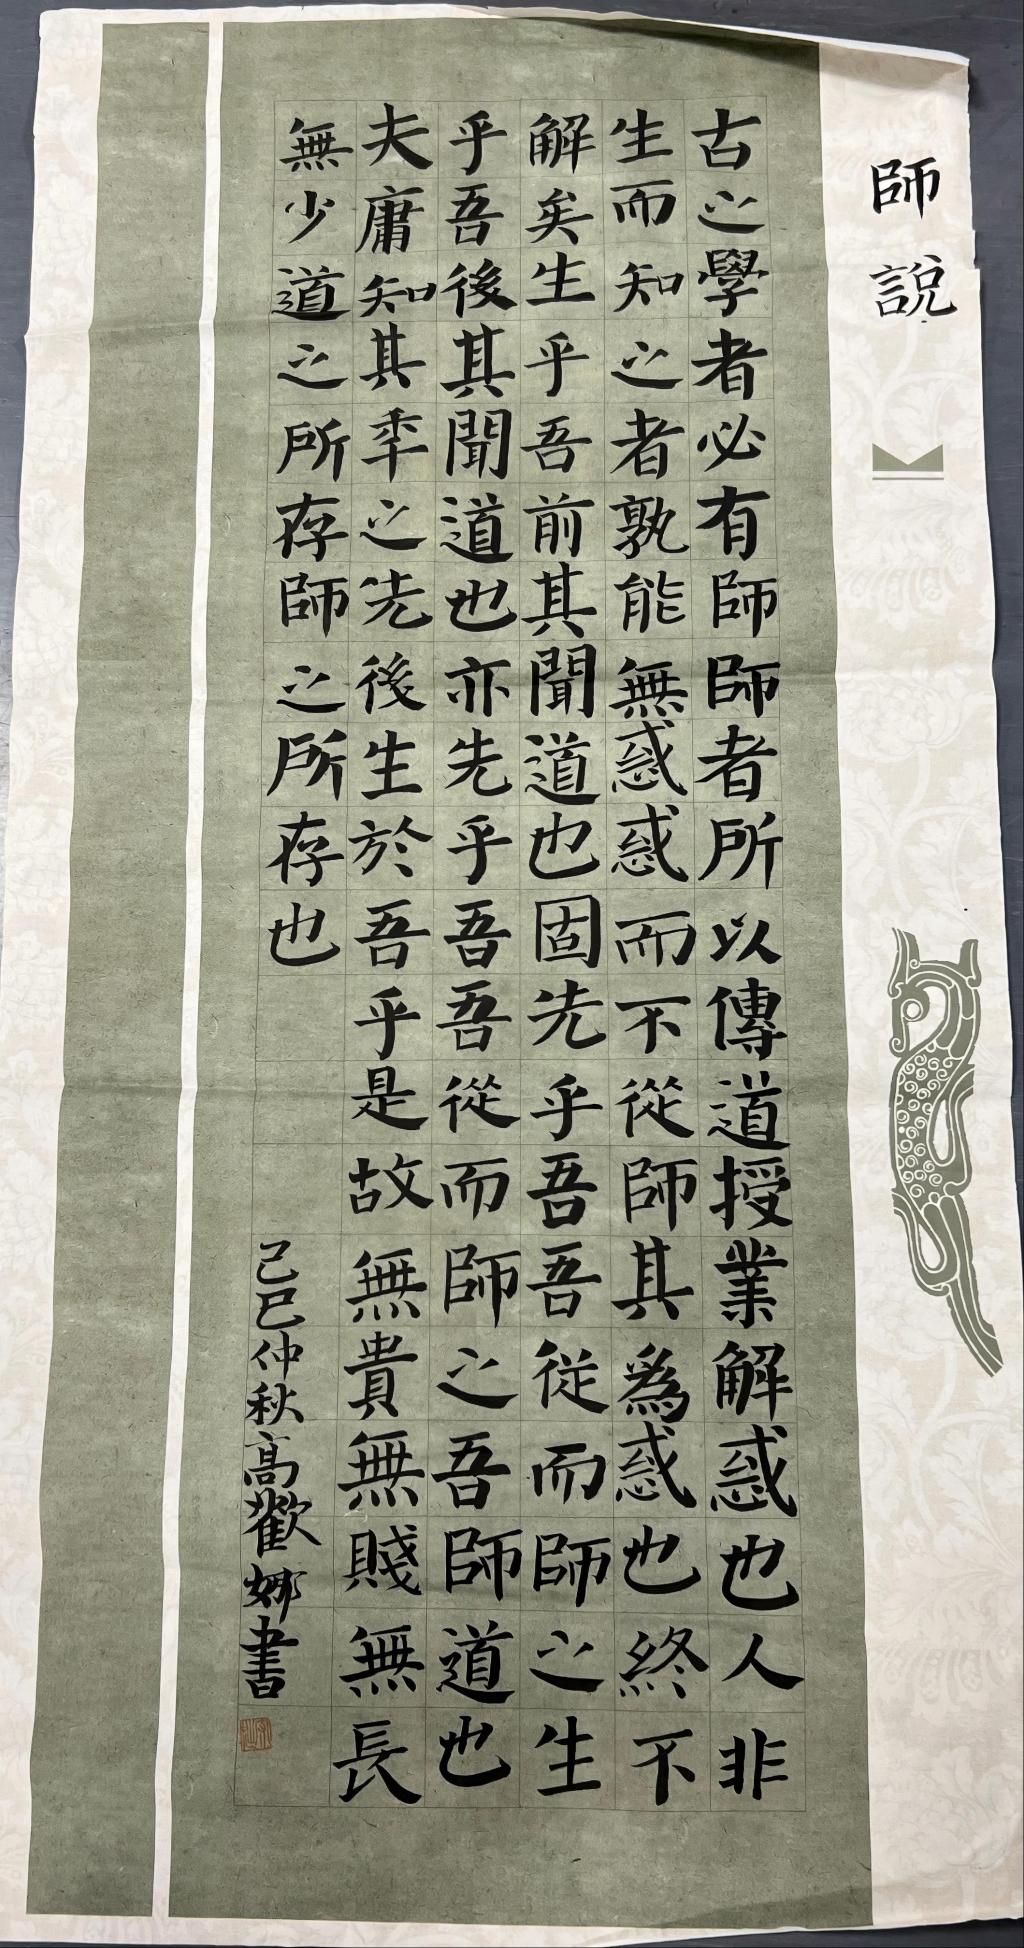 師說
古之學者必有師師者所以傳道授業解惑也人非
生而知之者孰能無惑惑而不從師其爲惑也終不
解矣生乎吾前其聞道也固先乎吾吾從而師之生
乎吾後其聞道也亦先乎吾吾從而師之吾師道也
夫庸知其年之先後生於吾乎是故無貴無賤無長
無少道之所存師之所存也
己巳仲秋高歡娜書